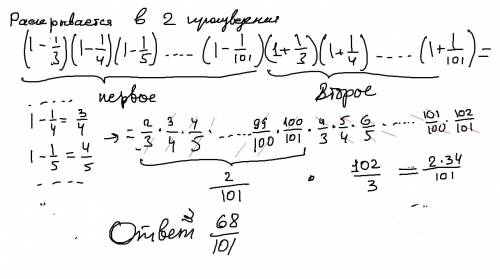 Раскрывается в 2 произведения
(1-1/3)(1-1/4)(1-1/5) ..... (1-1/101)(1+1/3)(1+1/4) ..... (1+1/101)=
первое Второе
1-1/4=3/4
1-1/5=4/5
→ = 2/3 · 3/4 · 4/5 · ..... 99/100 · 100/101 · 4/3 · 5/4 · 6/5 · ..... 101/100 · 102/101
2/101 · 102/3 = 2·34/101
Ответ 68/101